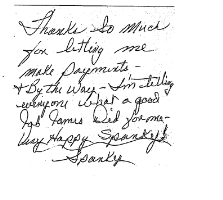 Thanks So Much
for letting me
make payments -
+ By the Way - I'm telling
everyone what a good
Job James Did for me -
Very Happy Spanky's
- Spanky